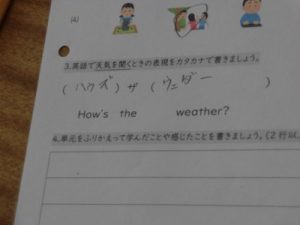 (4)
3.英語で天気を聞くときの表現をカタカナで書きましょう。
(ハウズ)ザ(ウェダー )
How's the weather?
4.単元をふりかえって学んだことや感じたことを書きましょう。(2行以